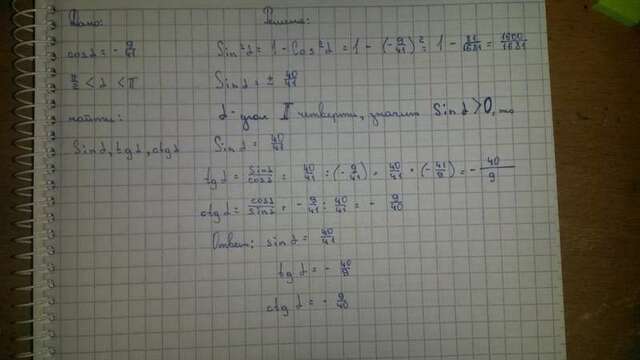 Дано:
cos α = - 9/41
π/2 < α < π
найти:
sin α, tg α, ctg α
Решение:
Sin²α = 1 - Cos²α = 1 - (- 9/41)² = 1 - 81/1681 = 1600/1681
Sin α = ± 40/41
α - угол II четверти, значит Sin α > 0, то
Sin α = 40/41
tg α = sin α/cos α = 40/41 : (- 9/41) = 40/41 · (- 41/9) = - 40/9
ctg α = cos α/sin α = - 9/41 : 40/41 = - 9/40
Ответ: sin α = 40/41
tg α = - 40/9
ctg α = - 9/40